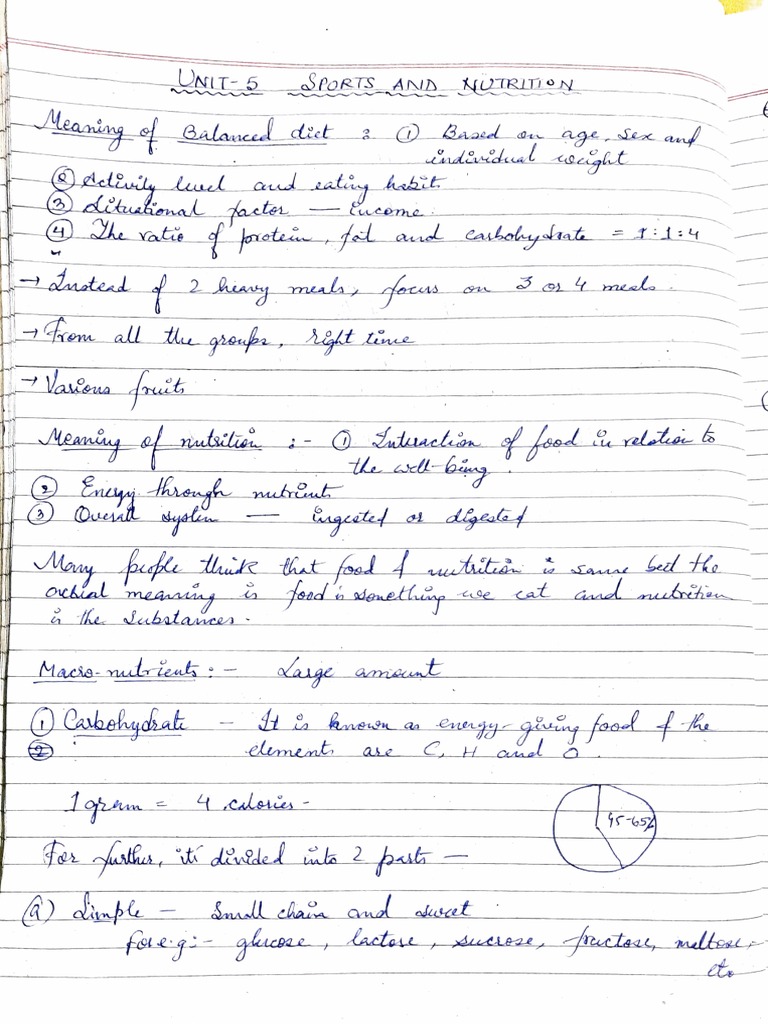 UNIT-5 SPORTS AND NUTRITION
Meaning of Balanced diet : ① Based on age, sex and
individual weight
② Activity level and eating habit.
③ Situational factor — income.
④ The ratio of protein, fat and carbohydrate = 1:1:4
→ Instead of 2 heavy meals, focus on 3 or 4 meals.
→ From all the groups, right time
→ Various fruits
Meaning of nutrition :- ① Interaction of food in relation to
the well-being.
② Energy through nutrients
③ Overall system — ingested or digested
Many people think that food & nutrition is same but the
actual meaning is food is something we eat and nutrition
is the substances.
Macro-nutrients :- Large amount
① Carbohydrate - It is known as energy-giving food & the
② elements are C, H and O.
1 gram = 4 calories -
45-65%
For further, its divided into 2 parts —
(a) Simple - Small chain and sweet
for e.g:- glucose, lactose, sucrose, fructose, maltose,
etc